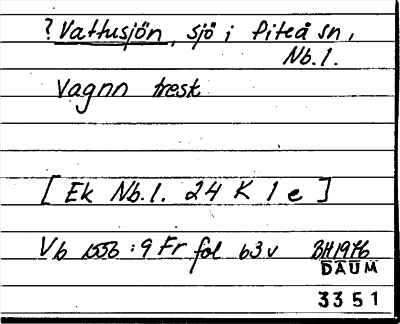 ? Vattusjön, sjö i Piteå sn,
Nb.l.
Vagnn tresk
[Ek Nb.l. 24 K 1 e]
Vb 1556:9 Fr fol 63v BH1976
DAUM
3351